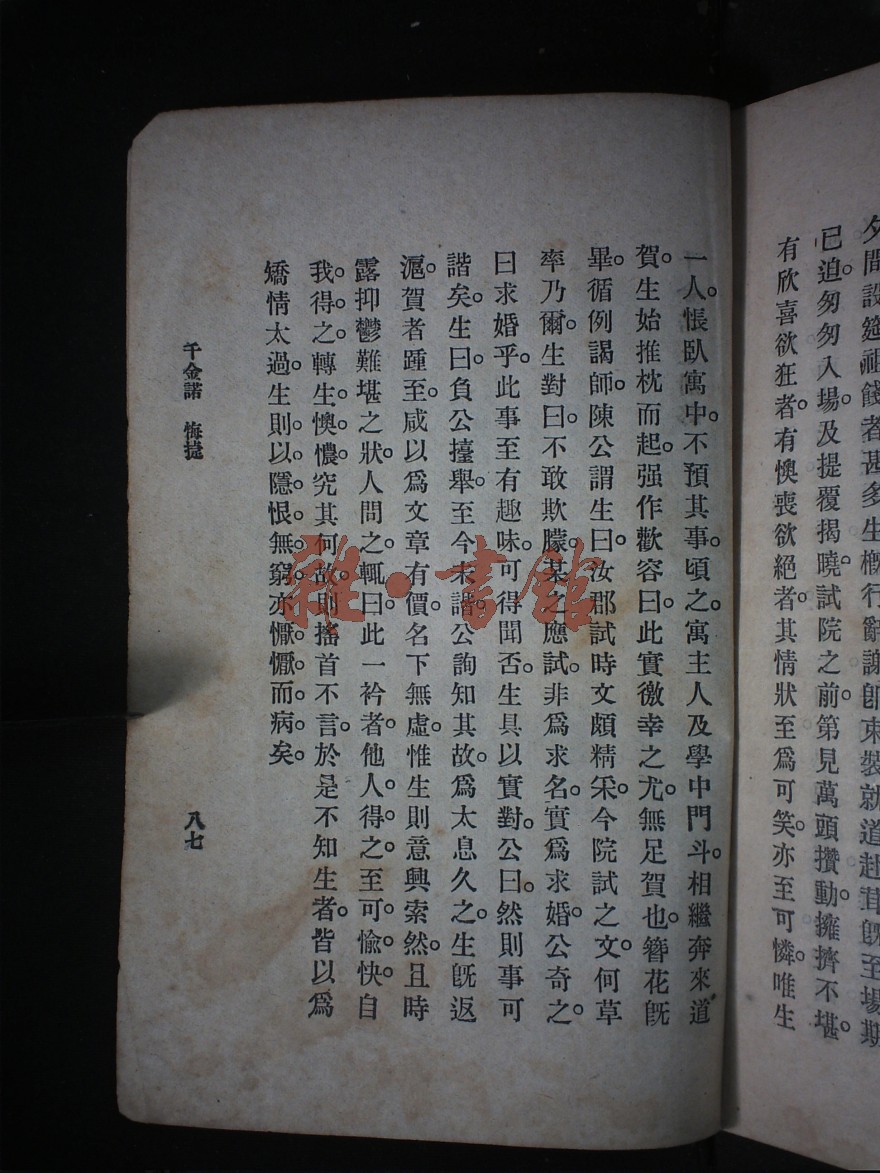 夕間設筵祖餞者甚多生槪行辭謝卽束裝就道赴茸旣至場期
已迫匆匆入場及提覆揭曉試院之前第見萬頭攢動擁擠不堪。
有欣喜欲狂者。有懊喪欲絕者。其情狀至爲可笑。亦至可憐唯生
一人。悵臥寓中。不預其事。頃之寓主人及學中門斗。相繼奔來道
賀。生始推枕而起。强作歡容。曰。此實徼幸之尤。無足賀也。簪花旣
畢。循例謁師。陳公謂生曰。汝郡試時文頗精采。今院試之文。何草
率乃爾。生對曰。不敢欺朦。某之應試。非爲求名。實爲求婚。公奇之。
曰求婚乎。此事至有趣味。可得聞否。生具以實對。公曰。然則事可
諧矣。生曰。負公擡舉。至今未諧。公詢知其故。爲太息久之。生旣返
滬。賀者踵至。咸以爲文章有價。名下無虛。惟生則意興索然。且時
露抑鬱難堪之狀。人問之。輒曰。此一衿者。他人得之。至可愉快。自
我。得。之。轉。生。懊。憹。究其何故。則搖首不言。於是不知生者。皆以爲
矯情太過。生。則。以。隱。恨。無。窮。亦。懨。懨。而。病。矣。
千金諾　悔㨗
八七
雜·書館